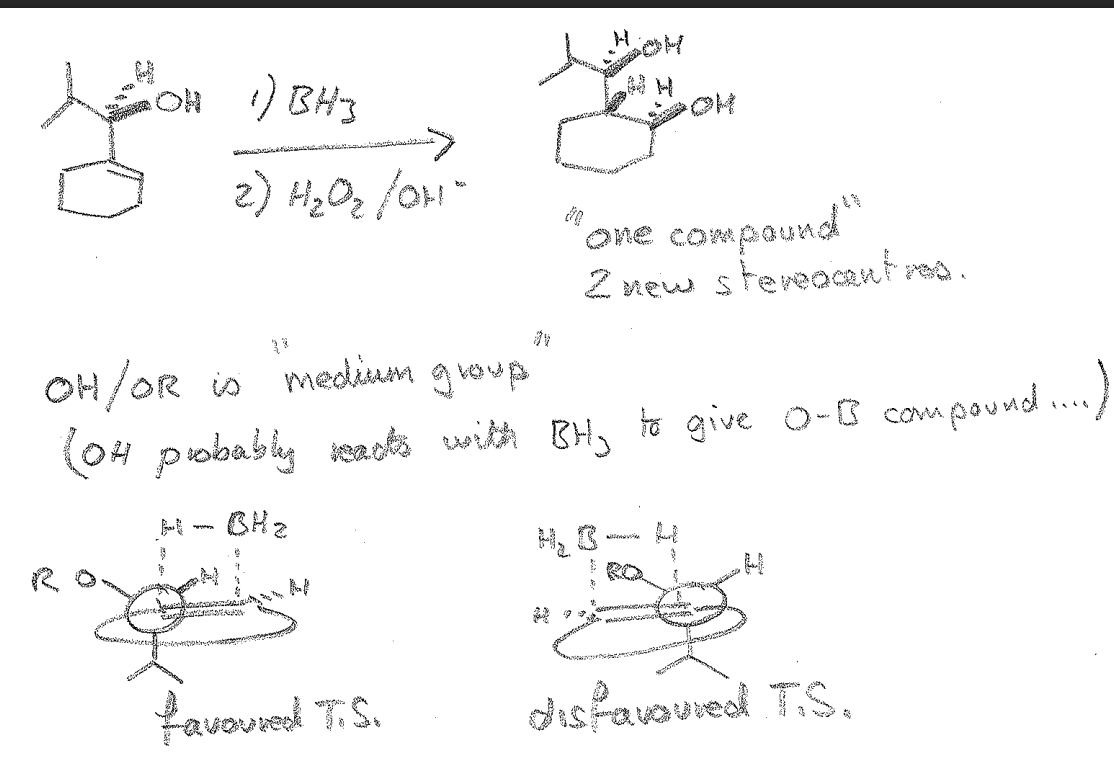 H
OH
1) BH₃
2) H₂O₂/OH⁻
H OH
H H
OH
"one compound"
2 new stereocentres.
OH/OR is "medium group"
(OH probably reacts with BH₃ to give O-B compound....)
H - BH₂
R O H H
favoured T.S.
H₂B - H
RO H
H
disfavoured T.S.